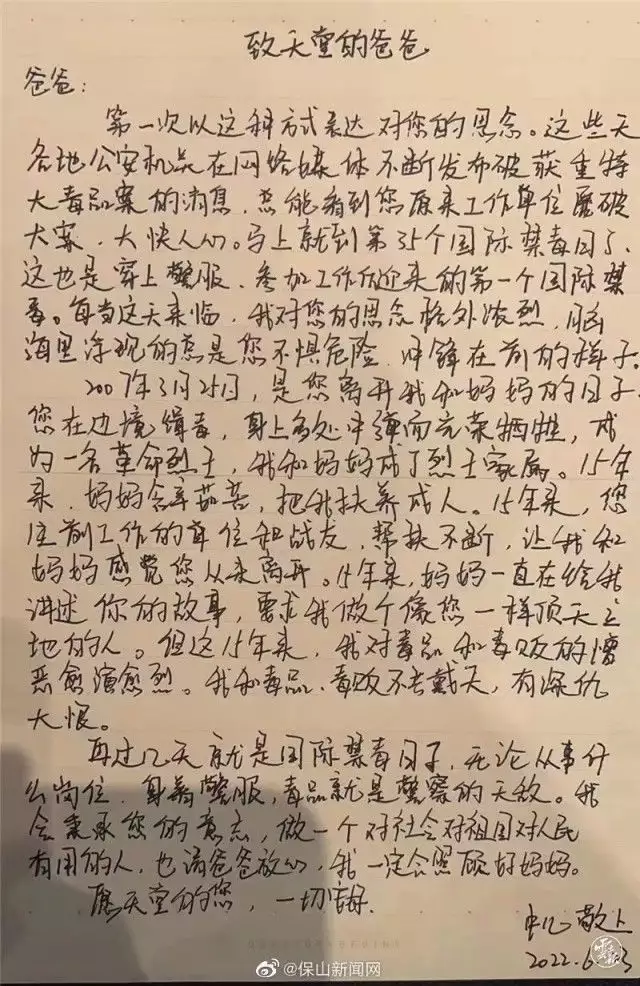 致天堂的爸爸
爸爸：
第一次以这种方式表达对您的思念。这些天
各地公安机关在网络媒体不断发布破获重特
大毒品案的消息，总能看到您原来工作单位屡破
大案，大快人心。马上就到第35个国际禁毒日了，
这也是穿上警服、参加工作后迎来的第一个国际禁
毒。每当这天来临，我对您的思念格外浓烈，脑
海里浮现的总是您不惧危险、冲锋在前的样子。
2007年3月25日，是您离开我和妈妈的日子。
您在边境缉毒，身上多处中弹而光荣牺牲，成
为一名革命烈士，我和妈妈成了烈士家属。15年
来，妈妈含辛茹苦，把我扶养成人。15年来，您
生前工作的单位和战友，帮扶不断，让我和
妈妈感觉您从未离开。15年来，妈妈一直在给我
讲述你的故事，要求我做个像您一样顶天立
地的人。但这15年来，我对毒品和毒贩的憎
恶愈演愈烈。我和毒品、毒贩不共戴天，有深仇
大恨。
再过几天就是国际禁毒日了，无论从事什
么岗位，身着警服，毒品就是警察的天敌。我
会秉承您的意志，做一个对社会对祖国对人民
有用的人，也请爸爸放心，我一定会照顾好妈妈。
愿天堂的您，一切安好。
敬上
2022.6
@保山新闻网